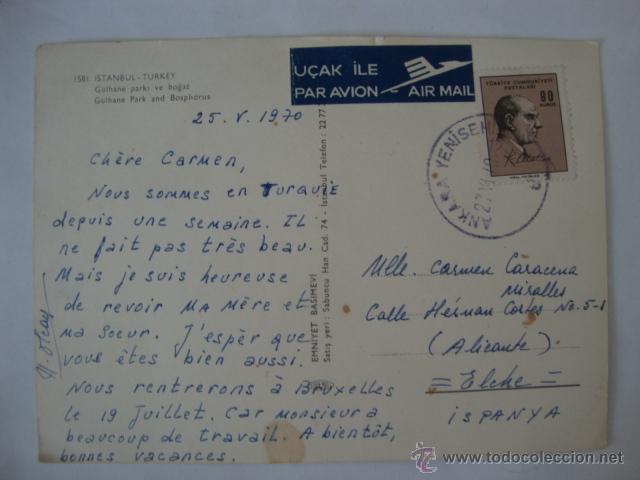 1581 ISTANBUL - TURKEY
Gülhane parkı ve boğaz
Gülhane Park and Bosphorus
UÇAK İLE
PAR AVION - AIR MAIL
TÜRKİYE CUMHURİYETİ
POSTALARI
90
KURUŞ
ANKARA YENİŞEHİR
25.V.1970
Chère Carmen,
Nous sommes en Turquie
depuis une semaine. IL
ne fait pas très beau.
Mais je suis heureuse
de revoir MA Mère et
ma Soeur. J'espèr que
vous êtes bien aussi.
Nous rentrerons à Bruxelles
le 19 Juillet. Car monsieur a
beaucoup de travail. A bientôt,
bonnes vacances.
EMNİYET BASIMEVİ
Satış yeri: Sabuncu Han Cad. 74 - İstanbul Telefon: 22 77
Mlle. Carmen Caracena
Miralles
Calle Hérnan Cortes No. 5-1
(Alicante)
= Elche =
İSPANYA
www.todocoleccion.net